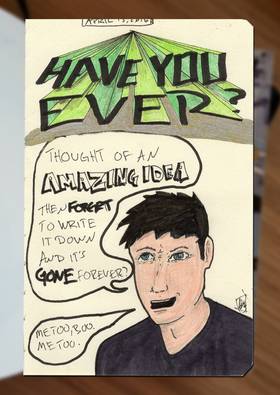 APRIL 13, 2016
HAVE YOU
EVER?
THOUGHT OF AN
AMAZING IDEA
THEN FORGET
TO WRITE
IT DOWN
AND IT'S
GONE FOREVER?
ME TOO, BOO.
ME TOO.